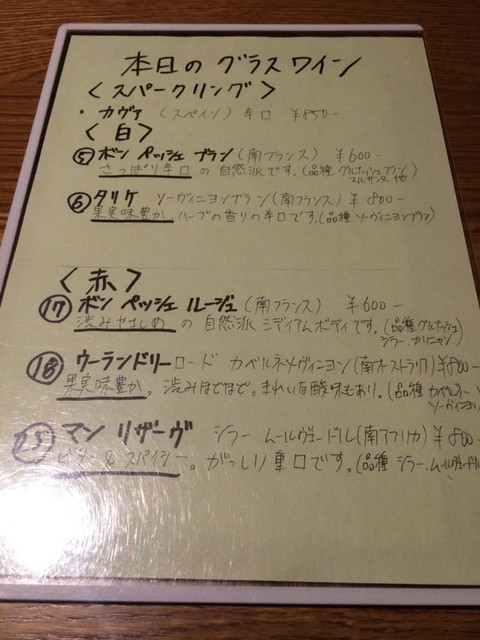 本日の グラスワイン
<スパークリング>
・カヴァ (スペイン) 辛口 ¥850-
<白>
⑤ ボン ペッシェ ブラン (南フランス) ¥600-
さっぱり辛口 の 自然派です。(品種 グルナッシュブラン
マルサンヌ 他
⑥ タリケ ソーヴィニヨンブラン (南フランス) ¥800-
果実味豊か ハーブの香りの辛口です。(品種 ソーヴィニヨンブラン)
<赤>
⑰ ボン ペッシェ ルージュ (南フランス) ¥600-
渋みやさしめ の 自然派 ミディアムボディです。(品種 グルナッシュ
シラー、カリニャン)
⑱ ウーランドリーロード カベルネソーヴィニヨン(南オーストラリア)¥800-
果実味豊か。渋みほどほど。きれいな酸味もあり。(品種 カベルネ
ソーヴィニヨン
マン リザーヴ シラー ムールヴェードル(南アフリカ) ¥800-
ビター & スパイシー。がっしり重口です。(品種 シラー、ムールヴェードル